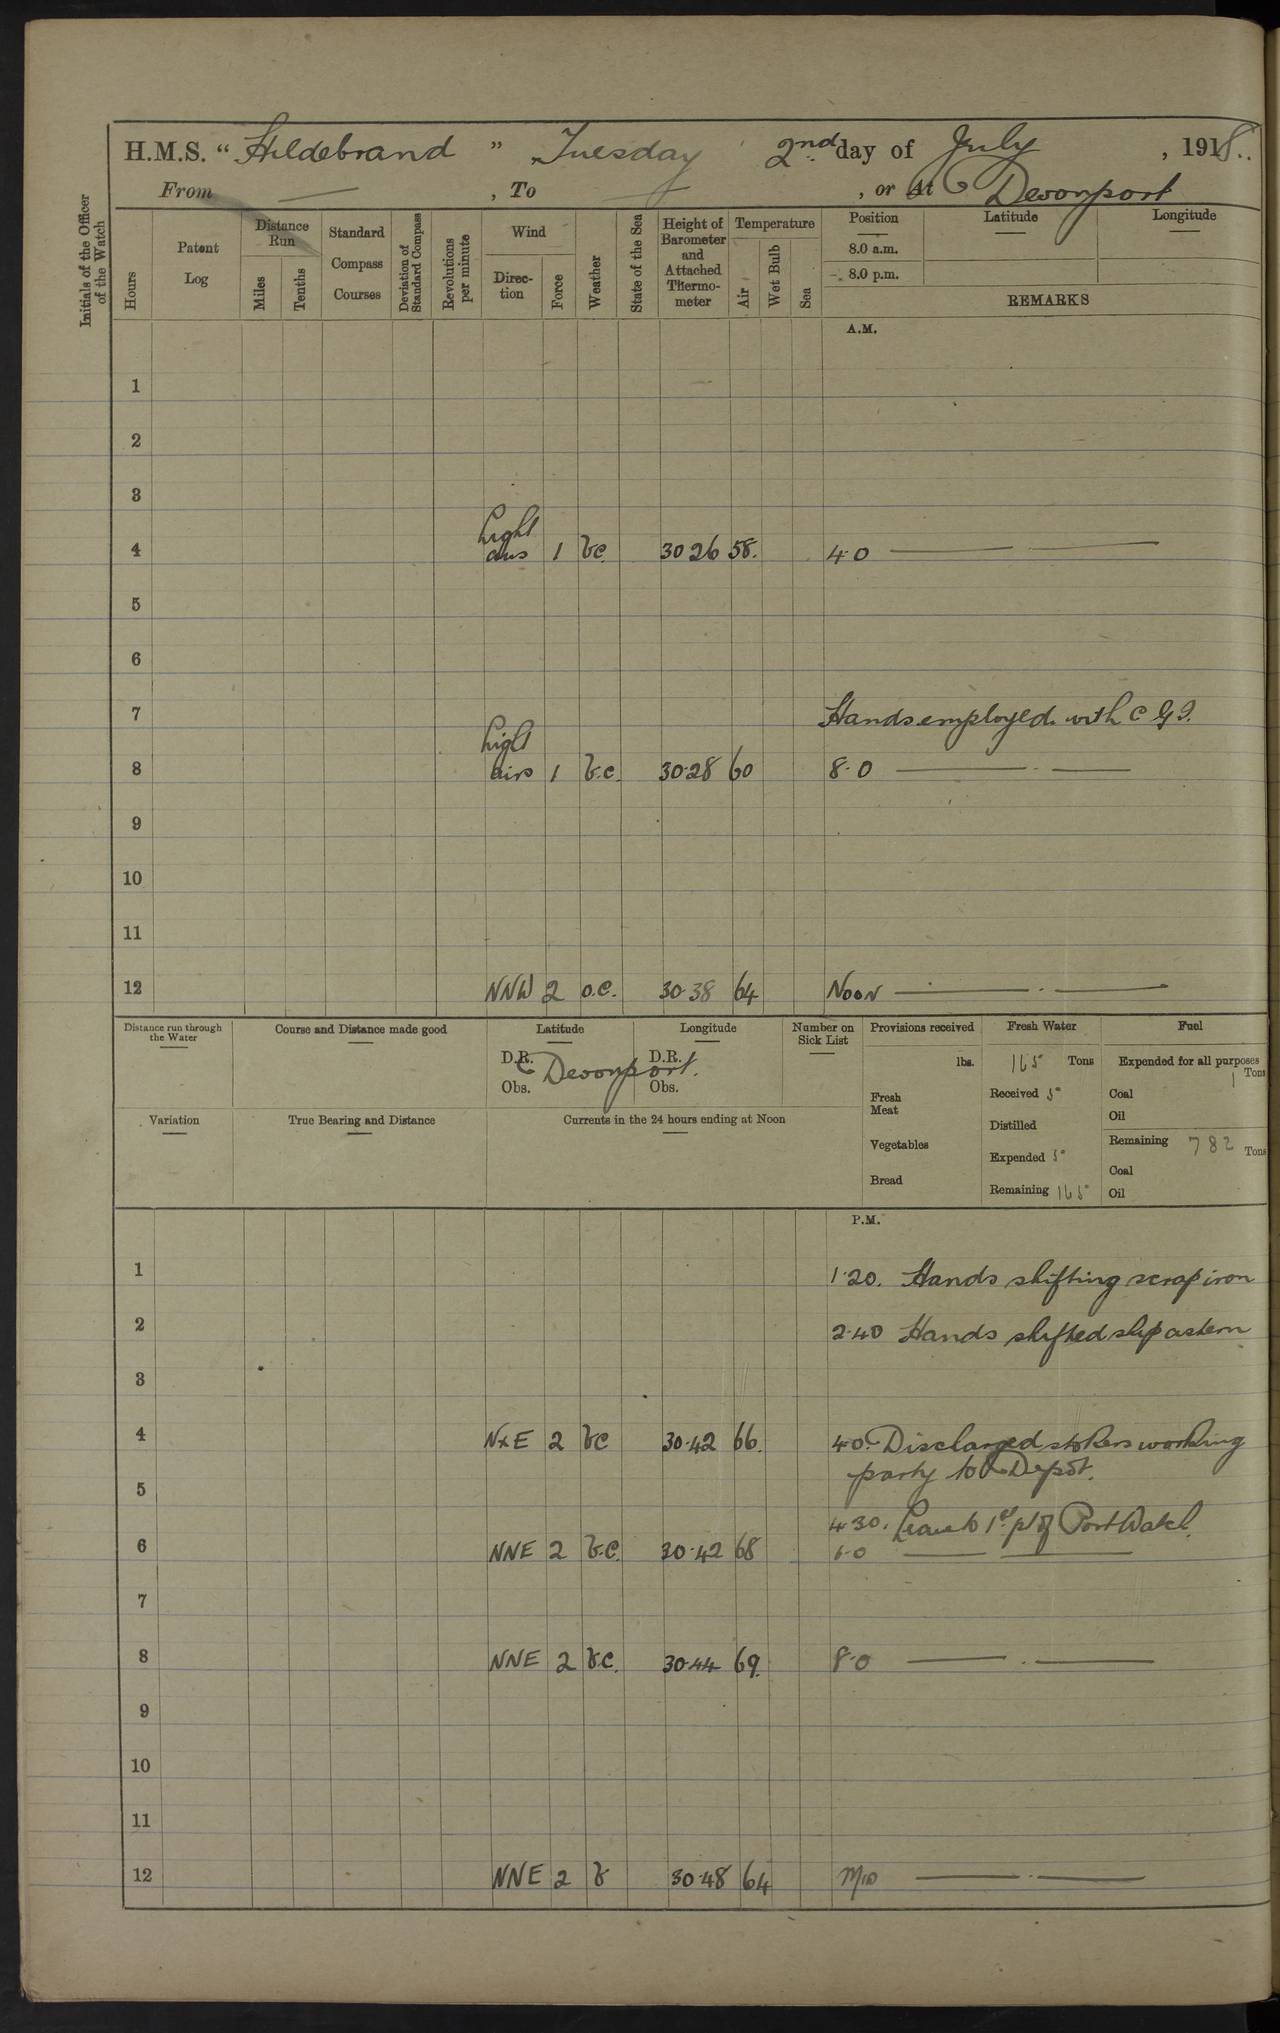 H.M.S. “Hildebrand” Tuesday 2nd day of July, 1918.
From —, To —, or At Devonport
Initials of the Officer of the Watch
Hours
Patent Log
Distance Run
Miles
Tenths
Standard Compass Courses
Deviation of Standard Compass
Revolutions per minute
Wind
Direction
Force
Weather
State of the Sea
Height of Barometer and Attached Thermometer
Temperature
Air
Wet Bulb
Sea
Position Latitude Longitude
8.0 a.m.
8.0 p.m.
REMARKS
A.M.
1
2
3
Light
4 airs 1 bc. 30 26 58. 4.0 —
5
6
7 Hands employed with
Light
8 airs 1 b.c. 30.28 60 8.0 —
9
10
11
12 NNW 2 o.c. 30.38 64 Noon —
Distance run through the Water
Course and Distance made good
Latitude
D.R.
Obs.
Longitude
D.R.
Obs.
Devonport.
Number on Sick List
Provisions received
lbs.
Fresh Meat
Vegetables
Bread
Fresh Water
165 Tons
Received 5
Distilled
Expended 5
Remaining 165
Fuel
Expended for all purposes
1 Tons
Coal
Oil
Remaining 782 Tons
Coal
Oil
Variation
True Bearing and Distance
Currents in the 24 hours ending at Noon
P.M.
1 1.20. Hands shifting scrap iron
2 2.40 Hands shifted ship astern
3
4 NxE 2 bc 30.42 66. 4.0. Discharged stokers working
party to Depôt.
5
4.30. Leave to 1st pt of Port Watch.
6 NNE 2 b.c. 30.42 68 6.0 —
7
8 NNE 2 b.c. 30.44 69. 8.0 —
9
10
11
12 NNE 2 b 30.48 64 Mid —